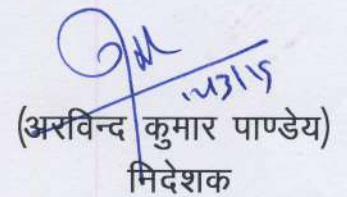 12/3/15
(अरविन्द कुमार पाण्डेय)
निदेशक